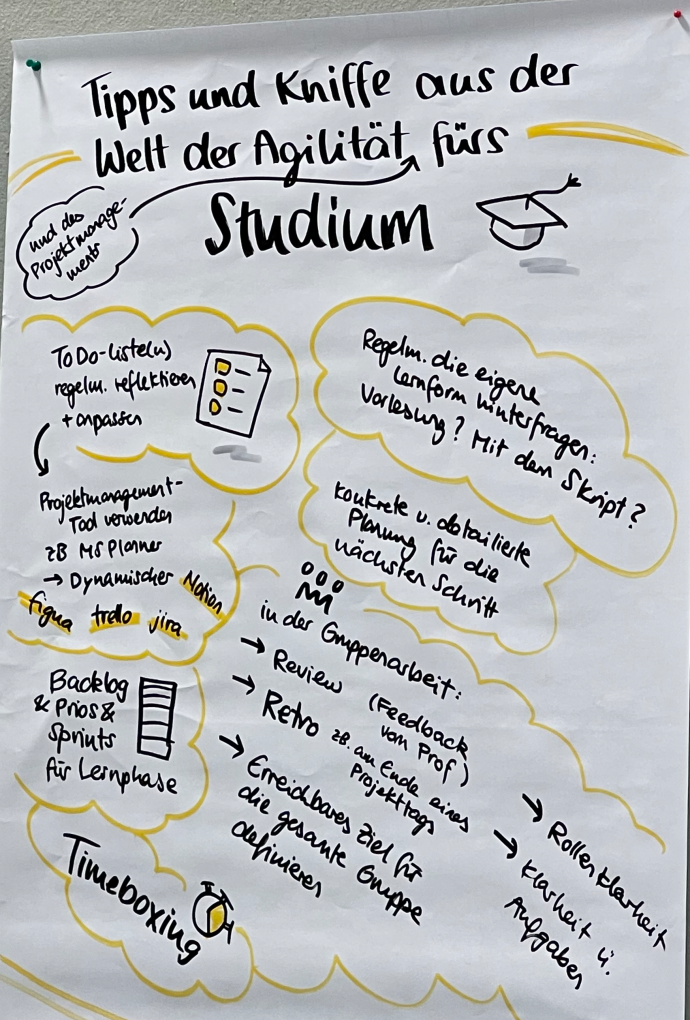 Tipps und Kniffe aus der
Welt der Agilität fürs
und des
Projektmanage-
ments
Studium
ToDo-Liste(n)
regelm. reflektieren
+ anpassen
Projektmanagement-
Tool verwenden
zB MS Planner
→ Dynamischer Notion
figua trello jira
Backlog
& Prios &
Sprints
für Lernphase
Timeboxing
Regelm. die eigene
Lernform hinterfragen:
Vorlesung? Mit dem Skript?
Konkrete u. detailierte
Planung für die
nächsten Schritt
in der Gruppenarbeit:
→ Review (Feedback
vom Prof)
→ Retro zB. am Ende eines
Projekttags
→ Erreichbares Ziel für
die gesamte Gruppe
definieren
→ Rollenklarheit
→ Klarheit ü.
Aufgaben